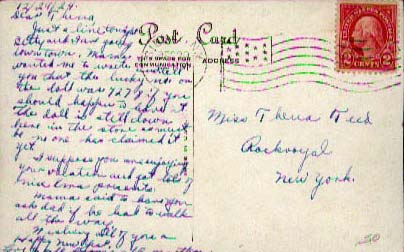 12/29/24
Dear Thena,
Just a line tonight
going
downtown. Mama
wanted me to write & tell
you that the lucky no. on
the doll was 727 & if you
should happen to have it
the doll is still down
here in the store so must
be no one has claimed it
yet.
I suppose you are enjoying
your vacation and got lots of
Xmas presents.
Mama said to have you
ask dad if he had to walk
all the way.
Wishing all of you a
Happy New Year
Post Card
THIS SPACE FOR
COMMUNICATION
ADDRESS
2 CENTS 2
Miss Thena Teed
Rockroyal
New York.
50